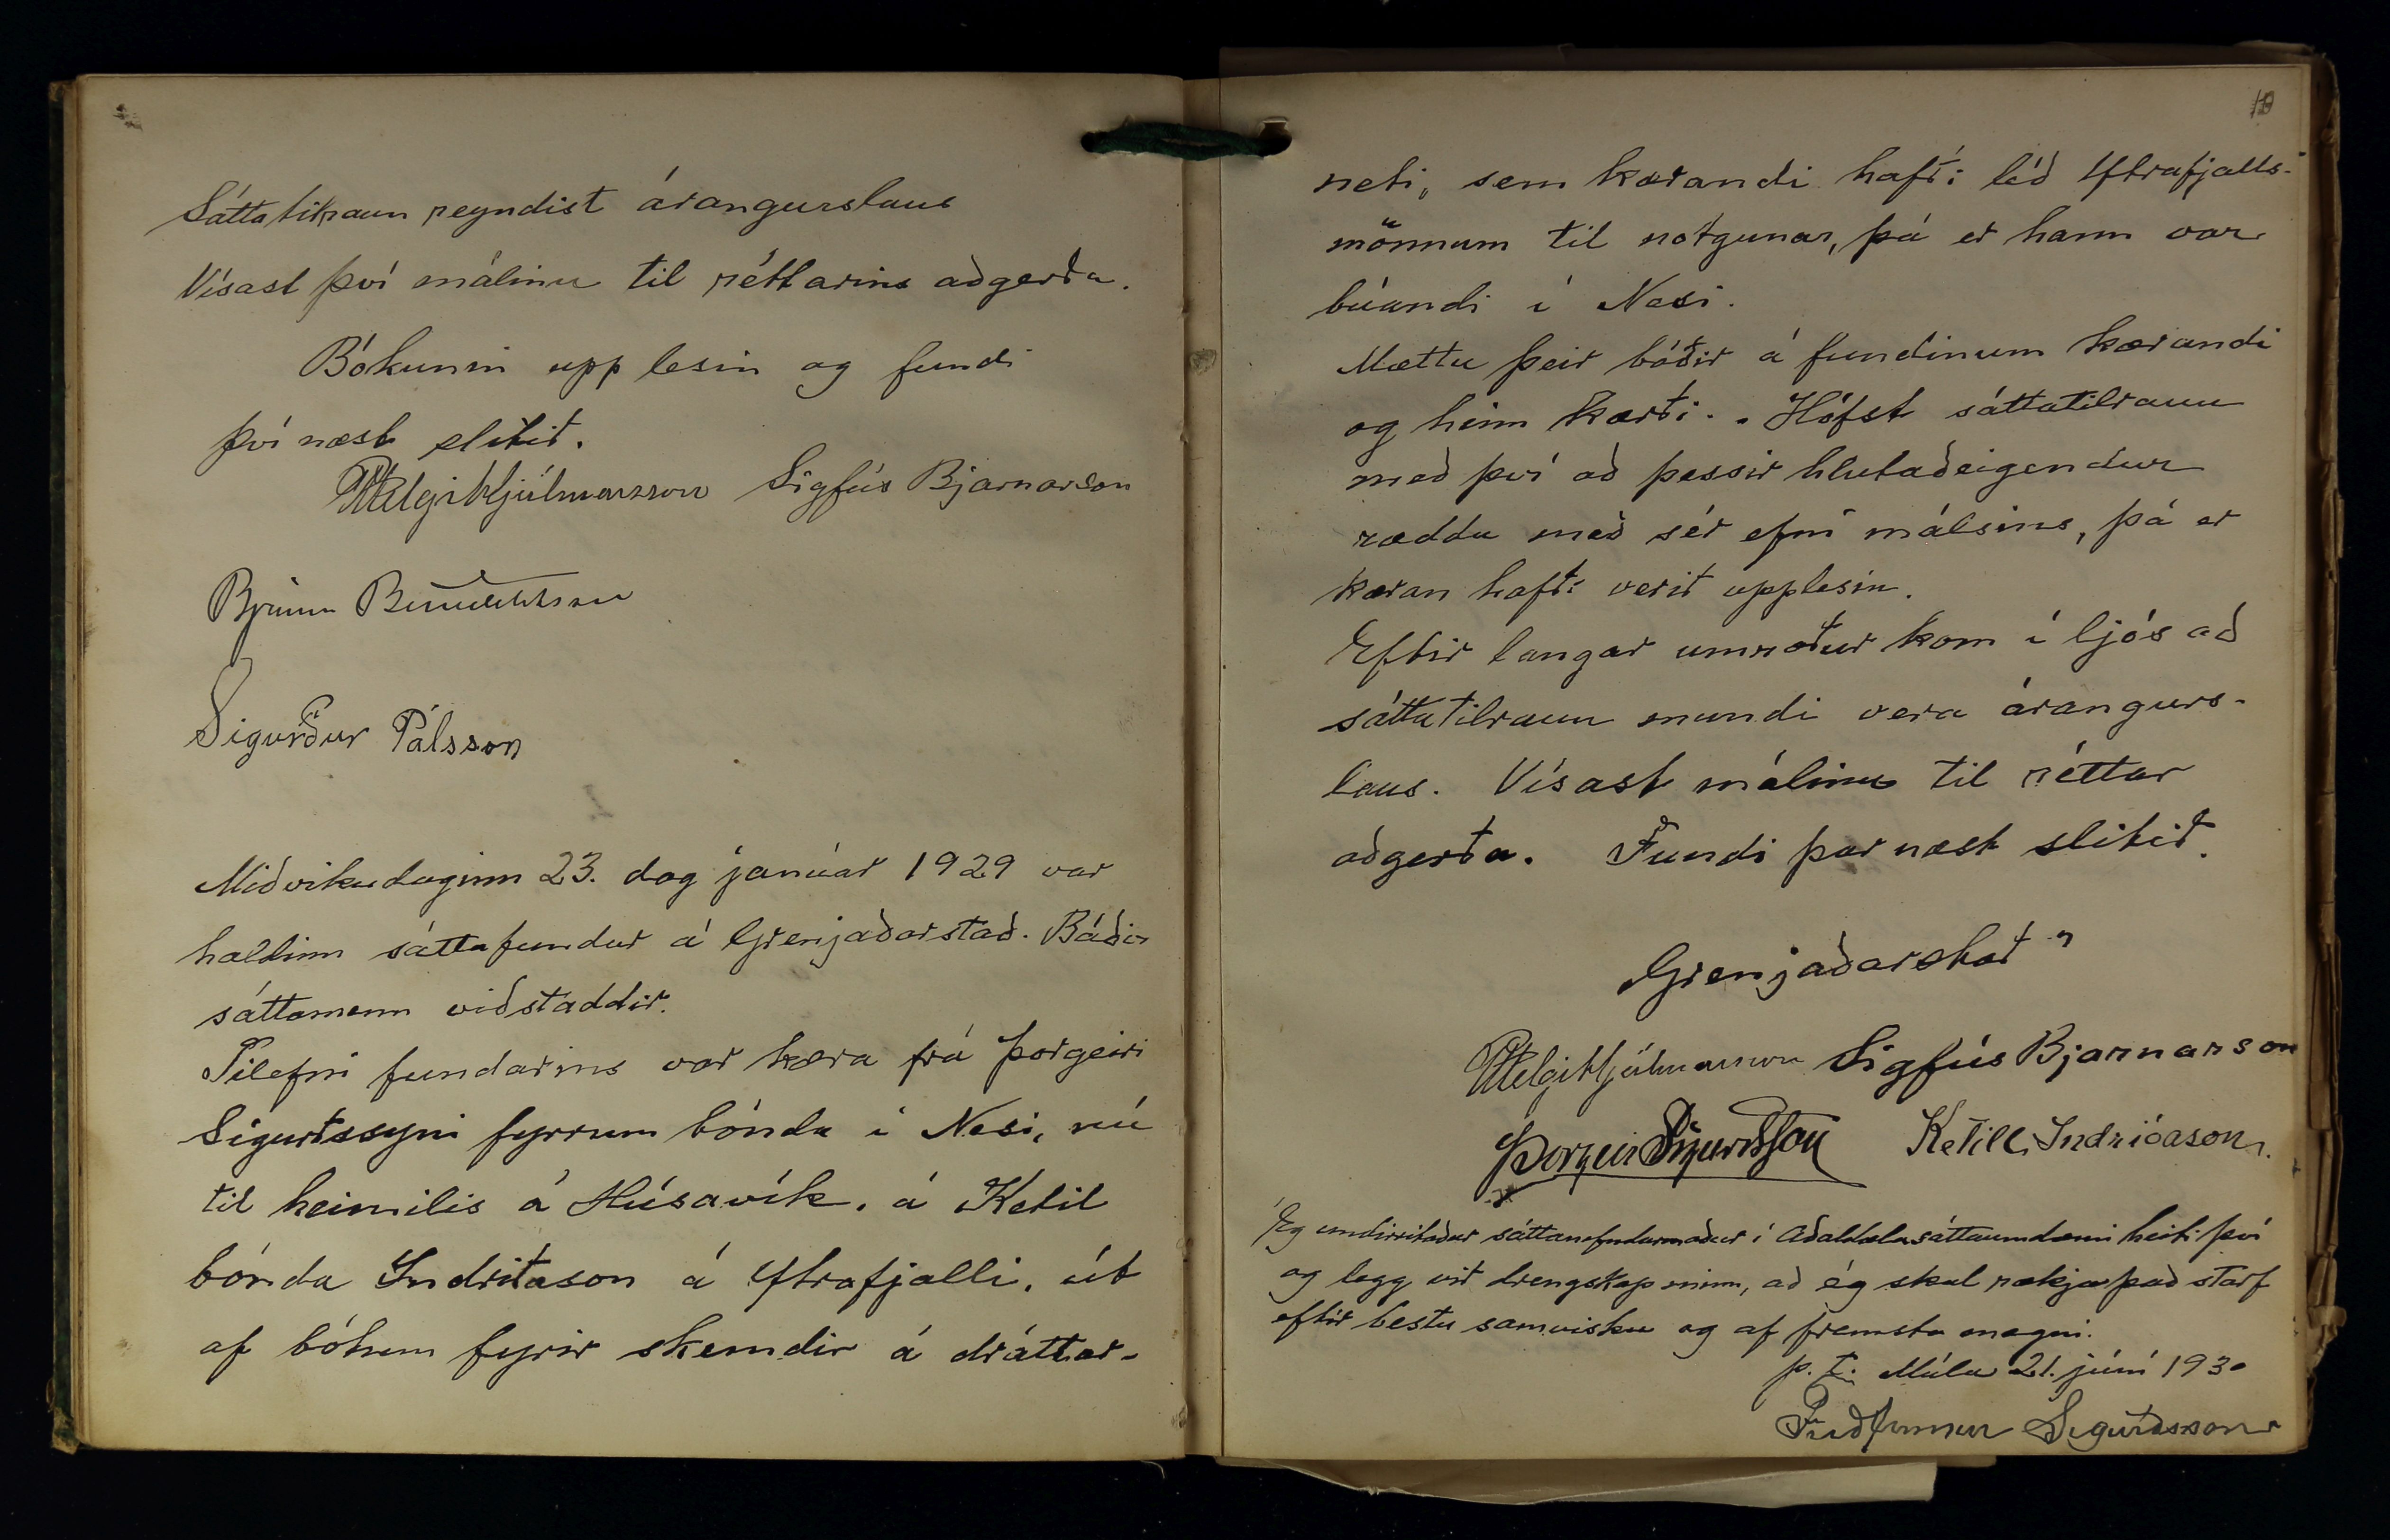 Sáttatilraun reyndist árangurslaus
Vísast því málinu til réttarins aðgerða.
Bókunin upp lesin og fundi
því næst slitið.
Helgi Hjálmarsson Sigfús Bjarnarson
Benediktsson
Sigurður Pálsson
Miðvikudaginn 23. dag janúar 1929 var
haldinn sáttafundur á Grenjaðarstað. Báðir
sáttamenn viðstaddir.
Tilefni fundarins var kæra frá Þorgeiri
Sigurðssyni fyrrum bónda í Nesi, nú
til heimilis á Húsavík, á Ketil
bónda Indriðason á Ytrafjalli, út
af bótum fyrir skemdir á dráttar-
10
neti, sem kærandi hafði léð Ytrafjalls-
mönnum til notkunar, þá er hann var
búandi í Nesi.
Mættu þeir báðir á fundinum kærandi
og hinn kærði. Hófst sáttatilraun
með því að þessir hlutaðeigendur
ræddu með sér efni málsins, þá er
kæran hafði verið upplesin.
Eftir langar umræður kom í ljós að
sáttatilraun mundi vera árangurs-
laus. Vísast málinu til réttar
aðgerða. Fundi þar næst slitið.
Grenjaðarstað
Helgi Hjálmarsson Sigfús Bjarnarson
Þorgeir Sigurðsson Ketill Indriðason.
Eg undirritaður sáttanefndarmaður í Aðaldælasáttaumdæmi heiti því
og legg við drengskap minn, að ég skal rækja það starf
eftir bestu samvisku og af fremsta megni.
p.t. Múla 21. júní 1930
Friðfinnur Sigurðsson